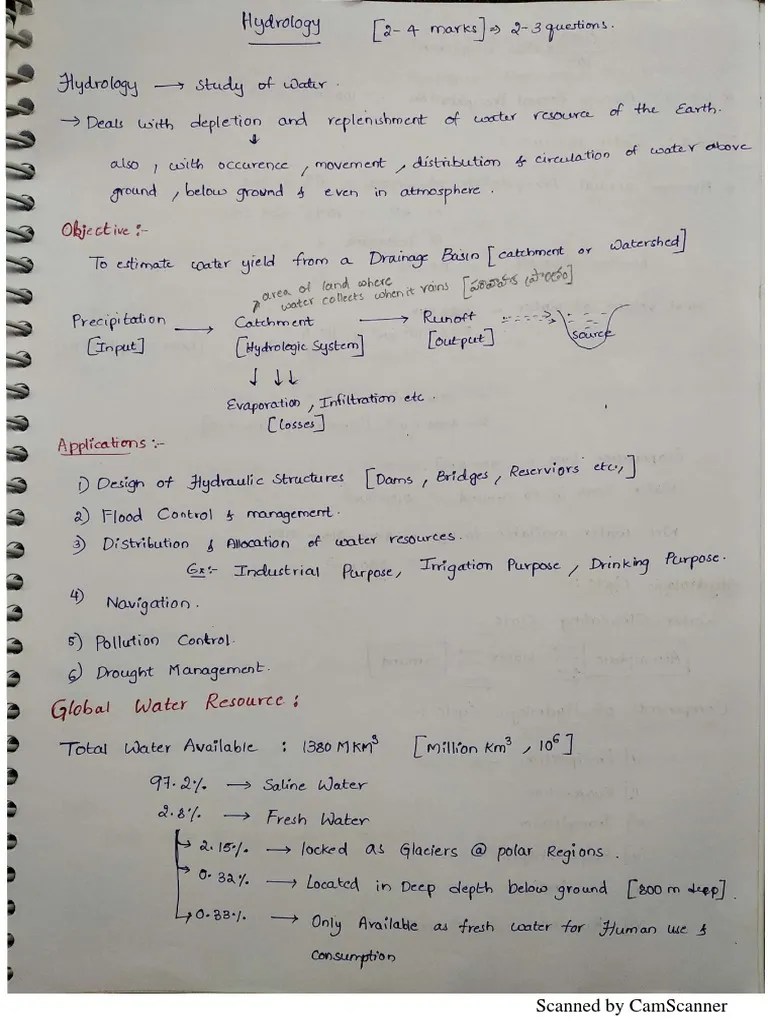 Hydrology [2-4 marks] ⇒ 2-3 questions.
Hydrology → study of water.
→ Deals with depletion and replenishment of water resource of the Earth.
↓
also, with occurence, movement, distribution & circulation of water above
ground, below ground & even in atmosphere.
Objective :-
To estimate water yield from a Drainage Basin [catchment or watershed]
area of land where
water collects when it rains [పరీవాహక ప్రాంతం]
Precipitation → Catchment → Runoff ⇢ source
[Input] [Hydrologic System] [Output]
↓ ↓↓
Evaporation, Infiltration etc.
[losses]
Applications :-
1) Design of Hydraulic Structures [Dams, Bridges, Reserviors etc,]
2) Flood Control & management.
3) Distribution & Allocation of water resources.
Ex:- Industrial Purpose, Irrigation Purpose, Drinking Purpose.
4) Navigation.
5) Pollution Control.
6) Drought Management.
Global Water Resource :
Total Water Available : 1380 MKm³ [Million Km³, 10⁶]
97.2% → Saline Water
2.8% → Fresh Water
→ 2.15% → locked as Glaciers @ polar Regions.
→ 0.32% → Located in Deep depth below ground [800 m deep].
→ 0.33% → Only Available as fresh water for Human use &
consumption
Scanned by CamScanner